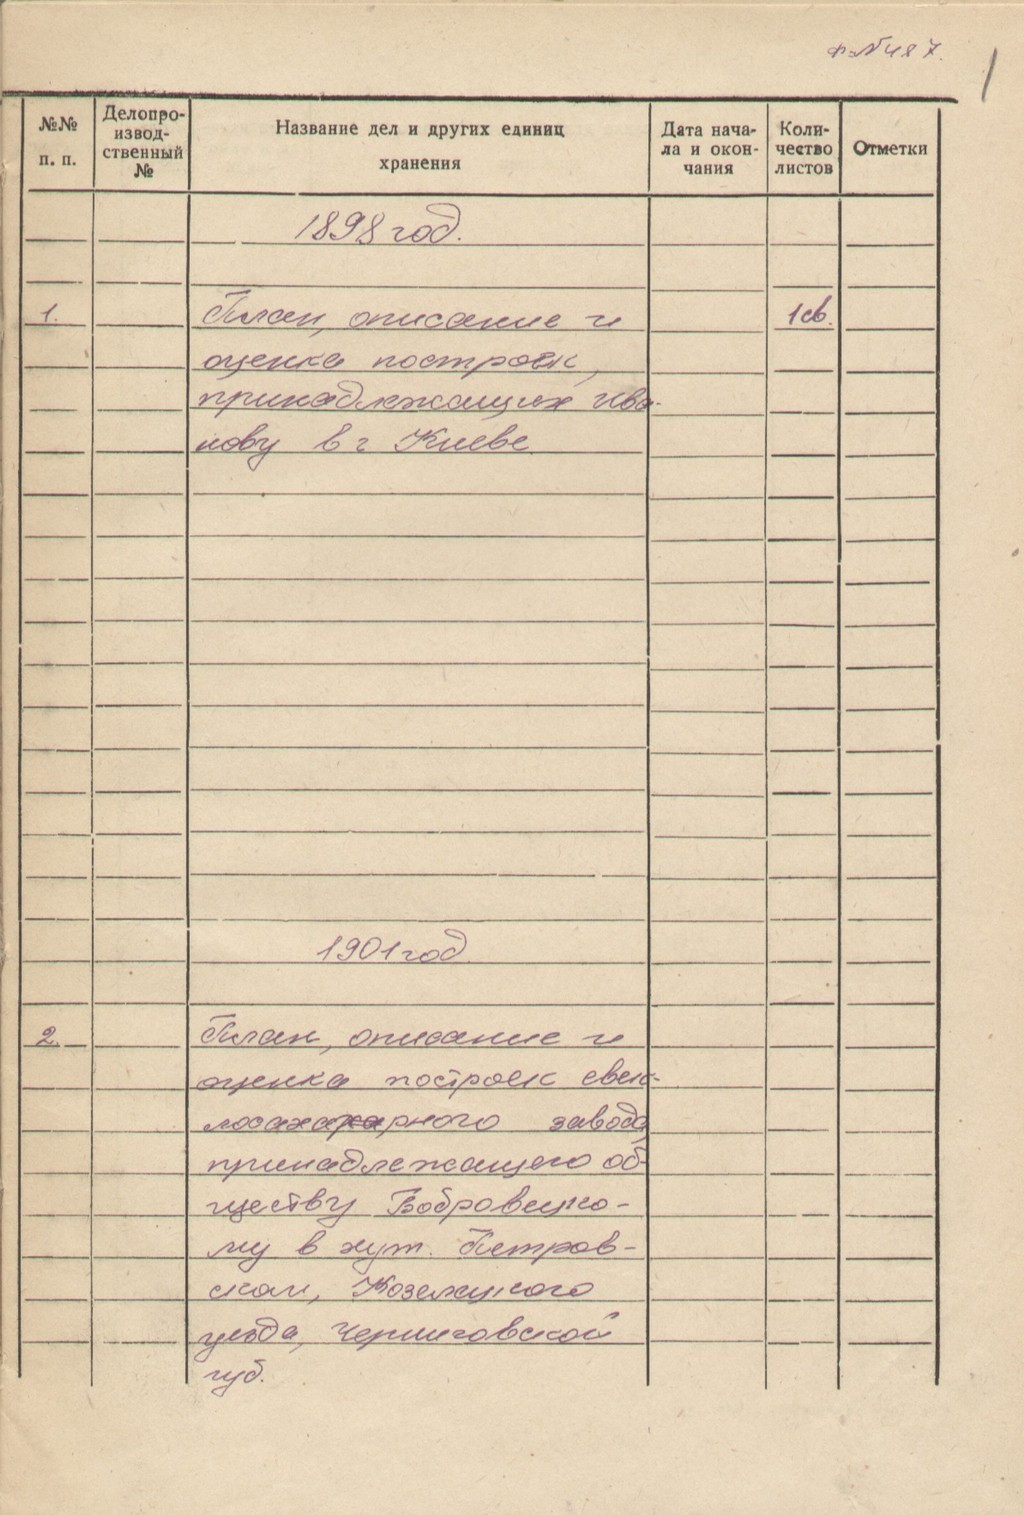 ф-№487.
1
№№
п. п.
Делопро-
извод-
ственный
№
Название дел и других единиц
хранения
Дата нача-
ла и окон-
чания
Коли-
чество
листов
Отметки
1898 год.
1. План, описание и 1св.
оценка построек,
принадлежащих Ива-
нову в г Киеве
1901 год
2. План, описание и
оценка построек свек-
лосахарного завода,
принадлежащего об-
ществу Бобровецко-
му в хут. Петров-
ском, Козелецкого
уезда, Черниговской
губ.